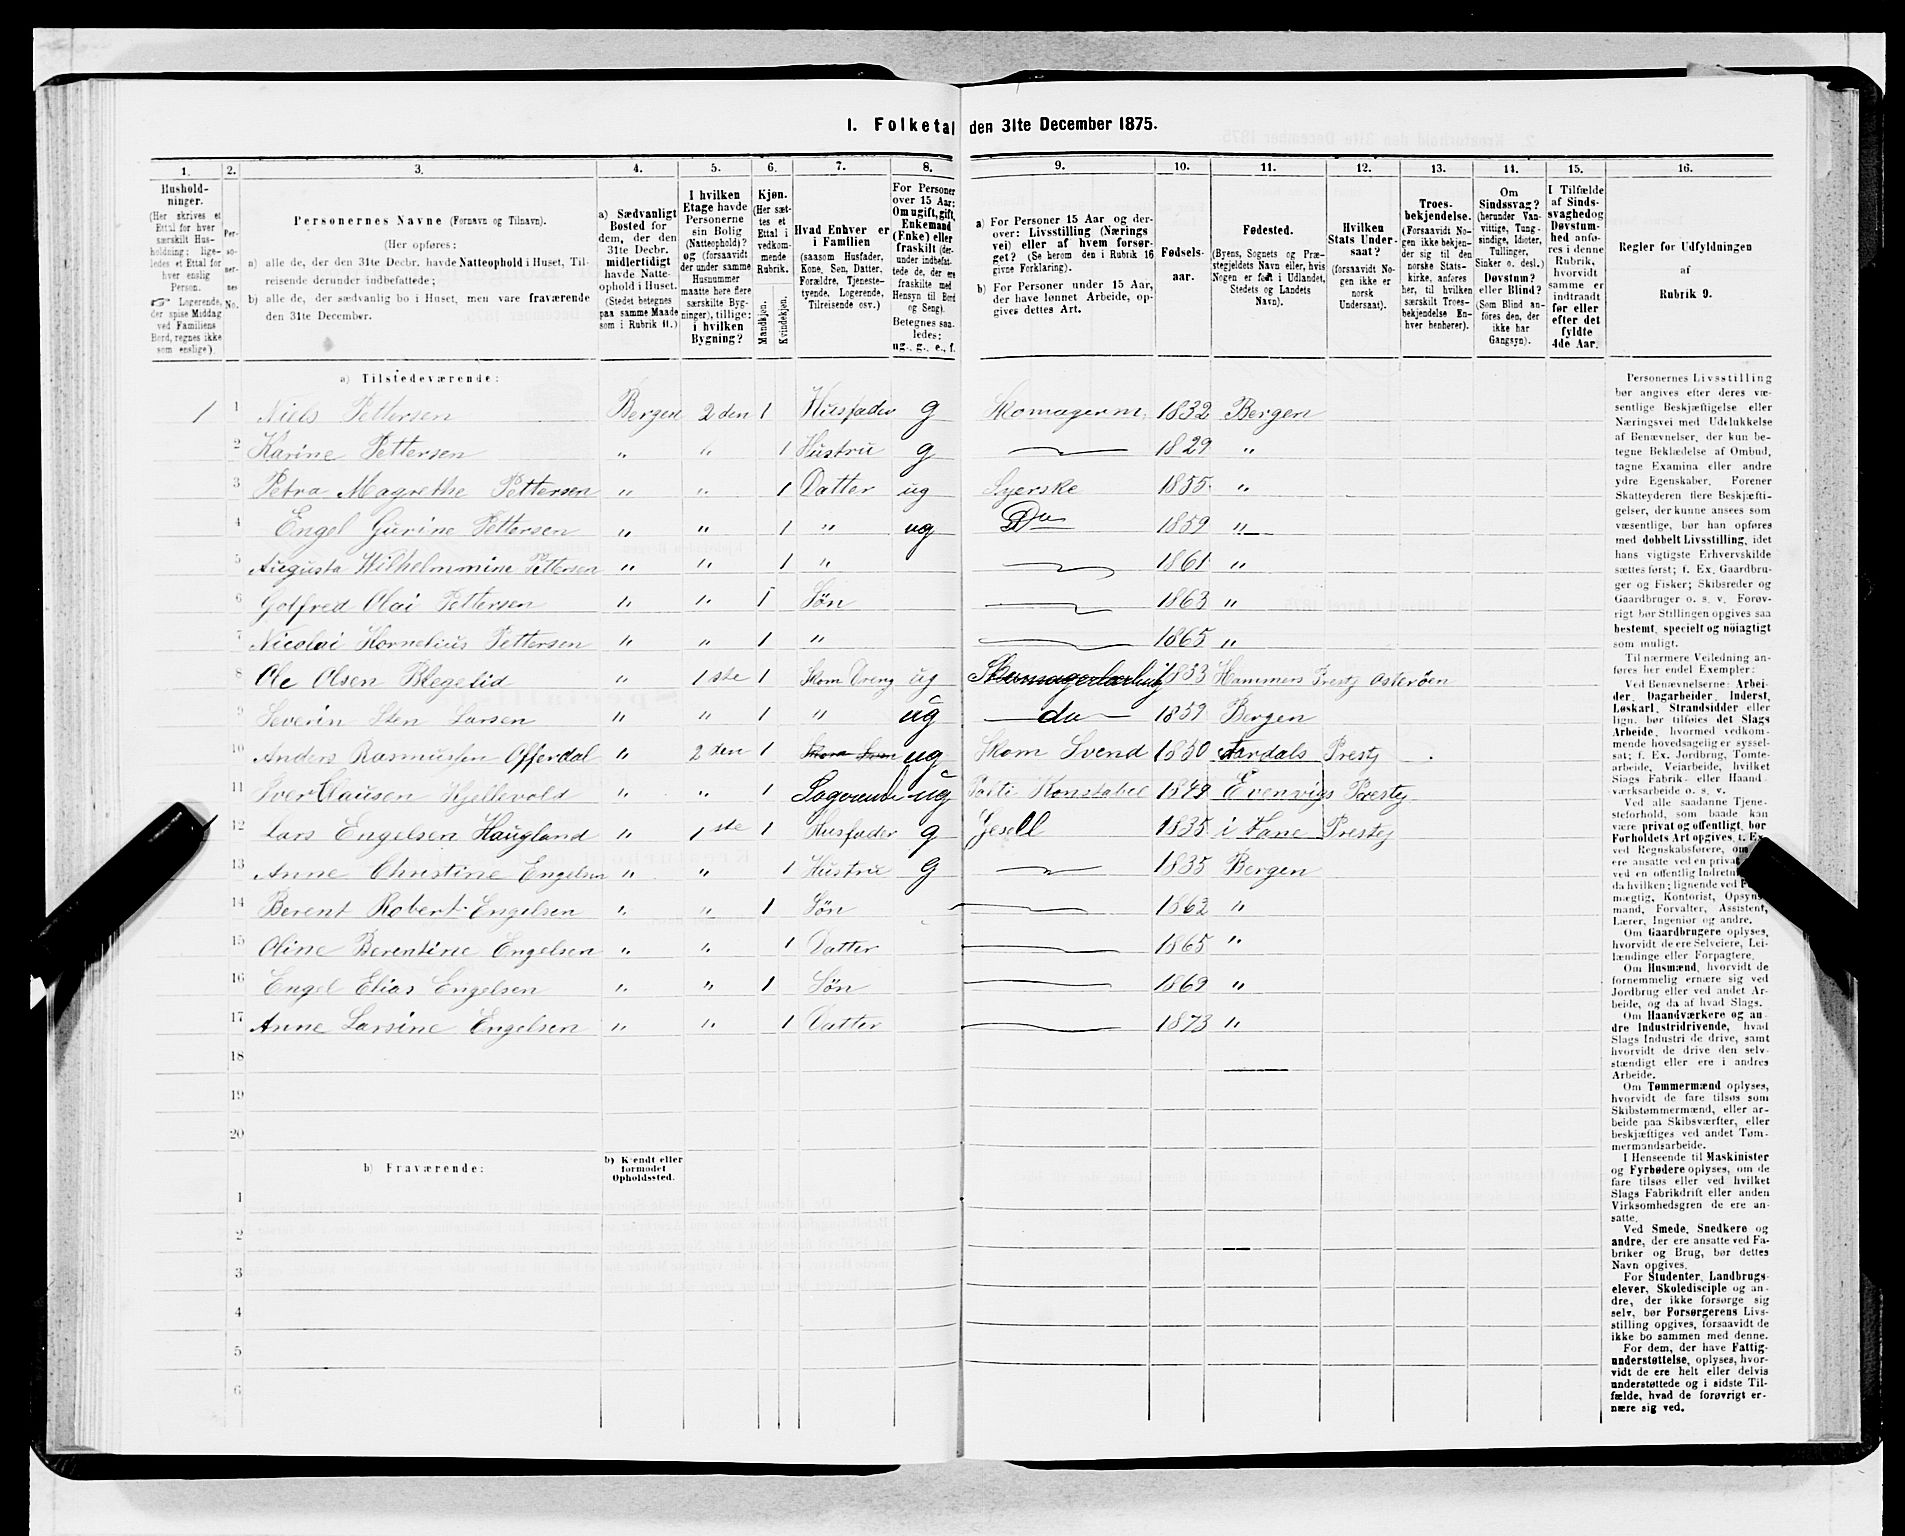 1. Folketal den 31te December 1875.
1.
2.
3.
4.
5.
6.
7.
8.
9.
10.
11.
12.
13.
14.
15.
16.
Hushold-
ninger.
(Her skrives et
Ettal for hver
særskilt Hus-
holdning; lige-
ledes et Ettal for
hver enslig
Person.
☞ Logerende,
der spise Middag
ved Familiens
Bord, regnes ikke
som enslige).
Per-
so-
ner-
nes
No.
Personernes Navne (Fornavn og Tilnavn).
(Her opføres:
a) alle de, der den 31te Decbr. havde Natteophold i Huset, Til-
reisende derunder indbefattede;
b) alle de, der sædvanlig bo i Huset, men vare fraværende
den 31te December.
a) Sædvanligt
Bosted for
dem, der den
31te Decbr.
midlertidigt
havde Natte-
ophold i Huset.
(Stedet betegnes
paa samme Maade
som i Rubrik 11.)
I hvilken
Etage havde
Personerne
sin Bolig
(Natteophold)?
og (forsaavidt
der under samme
Husnummer
maatte høre flere
særskilte Byg-
ninger), tillige:
i hvilken
Bygning?
Kjøn.
(Her sæt-
tes et
Ettal i
vedkom-
mende
Rubrik.
Mandkjøn.
Kvindekjøn.
Hvad Enhver er
i Familien
(saasom Husfader,
Kone, Søn, Datter,
Forældre, Tjeneste-
tyende, Logerende,
Tilreisende osv.)
For Personer
over 15 Aar:
Om ugift, gift,
Enkemand
(Enke) eller
fraskilt (der-
under indbefat-
tede de, der ere
fraskilte med
Hensyn til Bord
og Seng).
Betegnes saa-
ledes:
ug., g., e., f.
a) For Personer 15 Aar og der-
over: Livsstilling (Nærings
vei) eller af hvem forsør-
get? (Se herom den i Rubrik 16
givne Forklaring).
b) For Personer under 15 Aar,
der have lønnet Arbeide, op-
gives dettes Art.
Fødsels-
aar.
Fødested.
(Byens, Sognets og Præ-
stegjeldets Navn eller, hvis
Nogen er født i Udlandet,
Stedets og Landets
Navn).
Hvilken
Stats Under-
saat?
(forsaavidt No-
gen ikke er
norsk
Undersaat).
Troes-
bekjendelse.
(Forsaavidt No-
gen ikke bekjen-
der sig til den
norske Stats-
kirke, anføres
her, til hvilken
særskilt Troes-
bekjendelse En-
hver henhører).
Om
Sindssvag?
(herunder Van-
vittige, Tung-
sindige, Idioter,
Tullinger,
Sinker o. desl.)
Døvstum?
eller Blind?
(Som Blind an-
føres den, der
ikke har
Gangsyn).
I Tilfælde
af Sinds-
svaghed og
Døvstum-
hed anfø-
res i denne
Rubrik,
hvorvidt
samme er
indtraadt
før eller
efter det
fyldte
4de Aar.
Regler for Udfyldningen
af
Rubrik 9.
a) Tilstedeværende:
1 1 Niels Pettersen Bergen 2den 1 Husfader g Skomagerm. 1832 Bergen
2 Karine Pettersen " " 1 Hustru g 1829 "
3 Petra Magrethe Pettersen " " 1 Datter ug Syerske 1855 "
4 Engel Gurine Pettersen " " 1 " ug Do 1859 "
5 Augusta Wilhelmmine Pettersen " " 1 " 1861 "
6 Gotfred Olai Pettersen " " 1 Søn 1863 "
7 Nicolai Kornelius Pettersen " " 1 " 1865 "
8 Ole Olsen Blegelid " 1ste 1 Skom Dreng ug Skomagerlærling 1853 Hammers Prestg Osterøen
9 Severin Sten Larsen " " 1 " ug do 1859 Bergen
10 Anders Rasmussen Offerdal " 2den 1 ug Skom Svend 1850 Aardals Prestg
11 Iver Clausen Kjellevold " " 1 Logerende ug Politi Konstabel 1849 Evenvigs Prestg
12 Lars Engelsen Haugland " 1ste 1 Husfader g Gesell 1835 i Fane Prestg
13 Anne Christine Engelsen " " 1 Hustru g 1835 Bergen
14 Berent Robert Engelsen " " 1 Søn 1862 "
15 Oline Berentine Engelsen " " 1 Datter 1865 "
16 Engel Elias Engelsen " " 1 Søn 1869 "
17 Anne Larsine Engelsen " " 1 Datter 1873 "
18
19
20
b) Fraværende:
b) Kjendt eller
formodet
Opholdssted.
1
2
3
4
5
6
Personernes Livsstilling
bør angives efter deres væ-
sentlige Beskjæftigelse eller
Næringsvei med Udelukkelse
af Benævnelser, der kun be-
tegne Beklædelse af Ombud,
tagne Examina eller andre
ydre Egenskaber. Forener
Skatteyderen flere Beskjæfti-
gelser, der kunne ansees som
væsentlige, bør han opføres
med dobbelt Livsstilling, idet
hans vigtigste Erhvervskilde
sættes først; f. Ex. Gaardbru-
ger og Fisker; Skibsreder og
Gaardbruger o. s. v. Forøv-
rigt bør Stillingen opgives saa
bestemt, specielt og nöiagtigt
som muligt.
Til nærmere Veiledning an-
føres her endel Exempler:
Ved Benævnelserne Arbei-
der, Dagarbeider, Inderst,
Løskarl, Strandsidder eller
lign. bør tilføies det Slags
Arbeide, hvormed vedkom-
mende hovedsagelig er syssel-
sat; f. Ex. Jordbrug, Tomte-
arbeide, Veiarbeide, hvilket
Slags Fabrik- eller Haand-
værksarbeide o. s. v.
Ved alle saadanne Tjene-
steforhold, som baade kan
være privat og offentligt, bør
Forholdets Art opgives, f. Ex.
ved Regnskabsførere, om
ere ansatte ved en privat
ved en offentlig
da hvilken; lignende ved
mægtig, Kontorist, Opsyns-
mand, Forvalter, Assistent,
Lærer, Ingeniør og andre.
Om Gaardbrugere oplyses,
hvorvidt de ere Selveiere, Lei-
lændinge eller Forpagtere.
Om Husmænd, hvorvidt de
fornemmelig ernære sig ved
Jordbrug eller ved andet Ar-
beide, og da af hvad Slags.
Om Haandværkere og an-
dre Industridrivende, hvad
Slags Industri de drive, samt
hvorvidt de drive den selv-
stændigt eller ere i andres
Arbeide.
Om Tømmermænd oplyses,
hvorvidt de fare tilsøs som
Skibstømmermænd, eller ar-
beide paa Skibsværfter, eller
beskjæftiges ved andet Tøm-
mermandsarbeide.
I Henseende til Maskinister
og Fyrbødere oplyses, om de
fare tilsøs eller ved hvilket
Slags Fabrikdrift eller anden
Virksomhedsgren de ere an-
satte.
Ved Smede, Snedkere og
andre, der ere ansatte ved Fa-
briker og Brug, bør dettes
Navn opgives.
For Studenter, Landbrugs-
elever, Skoledisciple og an-
dre, der ikke forsørge sig
selv, bør Forsørgerens Livs-
stilling opgives, forsaavidt de
ikke bo sammen med denne.
For dem, der have Fattig-
understøttelse, oplyses, hvor-
vidt de ere helt eller delvis
understøttede og i sidste Til-
fælde, hvad de forøvrigt er-
nære sig ved.